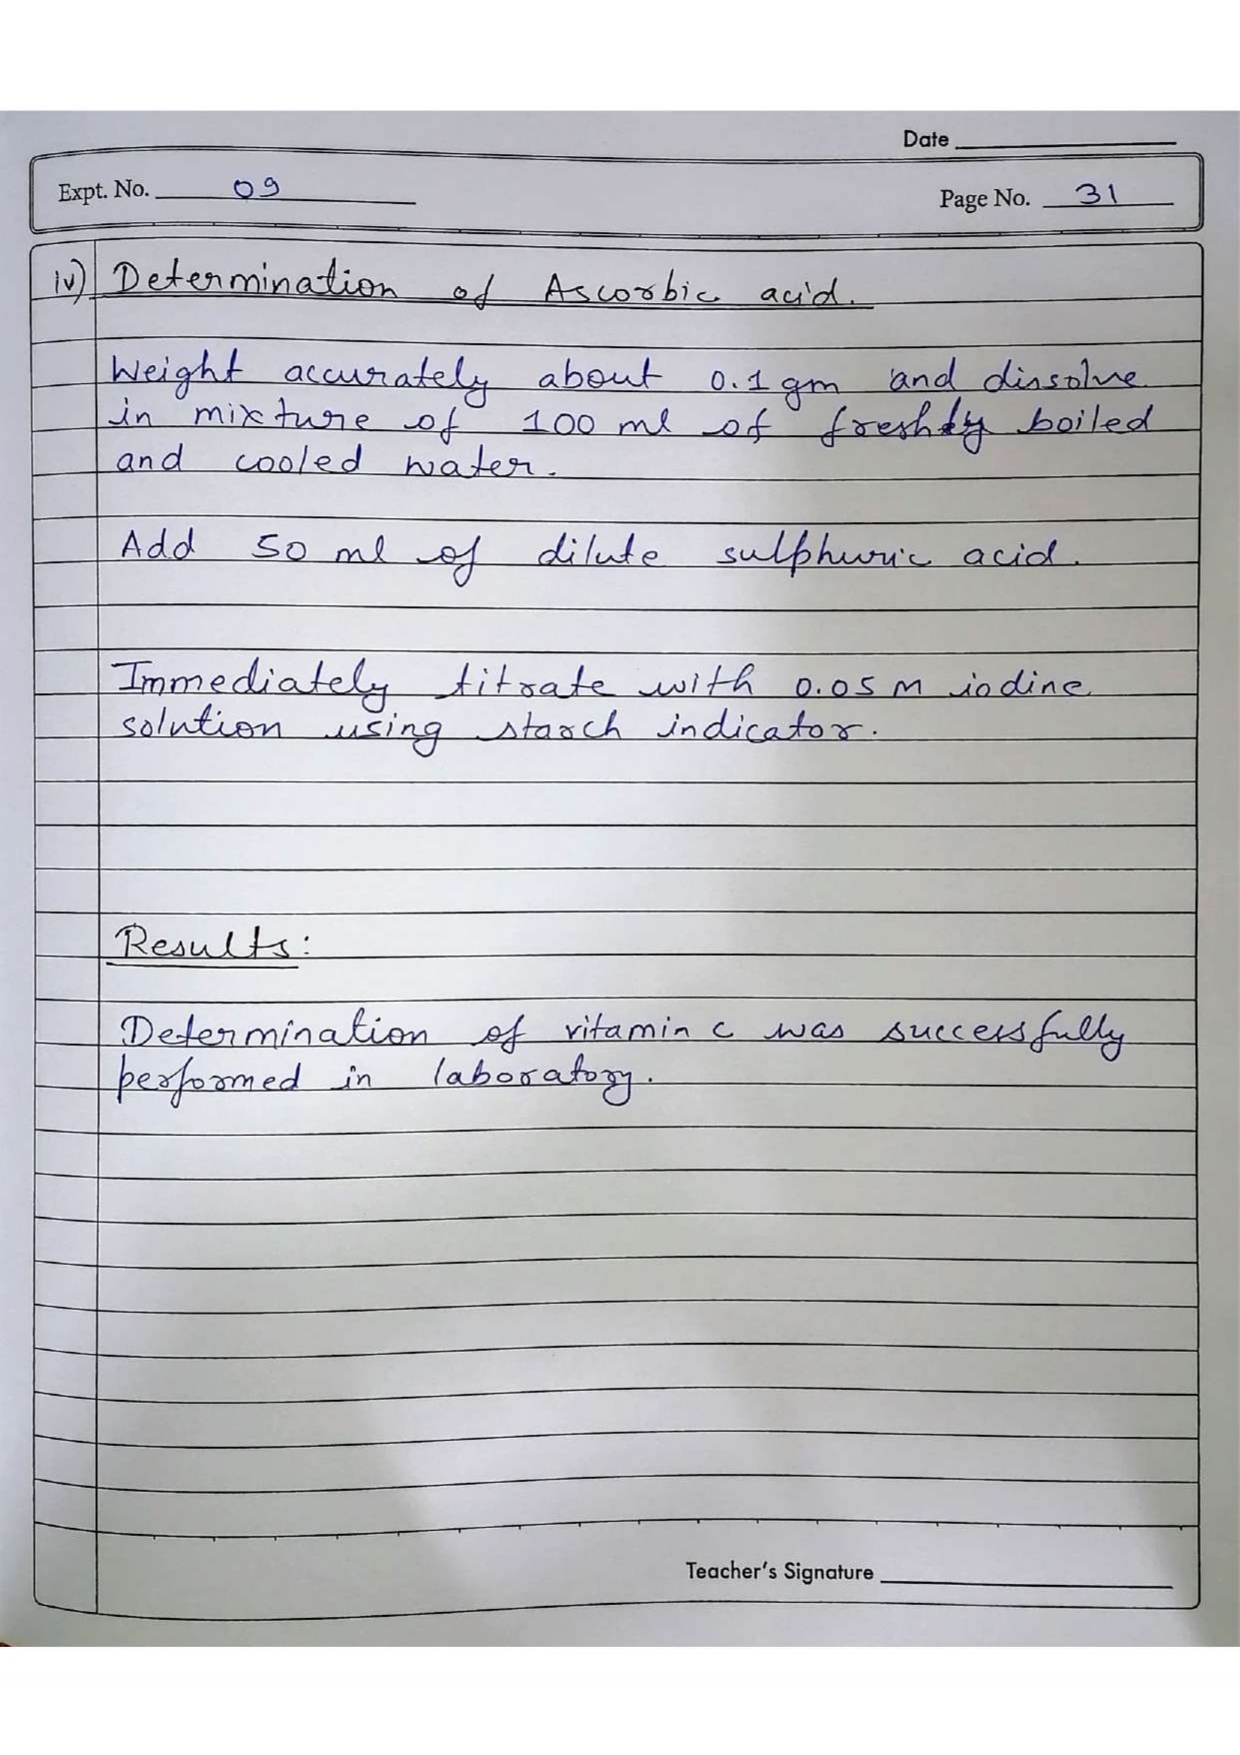 Date
Expt. No. 09
Page No. 31
iv) Determination of Ascorbic acid.
Weight accurately about 0.1 gm and dissolve
in mixture of 100 ml of freshly boiled
and cooled water.
Add 50 ml of dilute sulphuric acid.
Immediately titrate with 0.05 M iodine
solution using starch indicator.
Results:
Determination of vitamin c was successfully
performed in laboratory.
Teacher's Signature